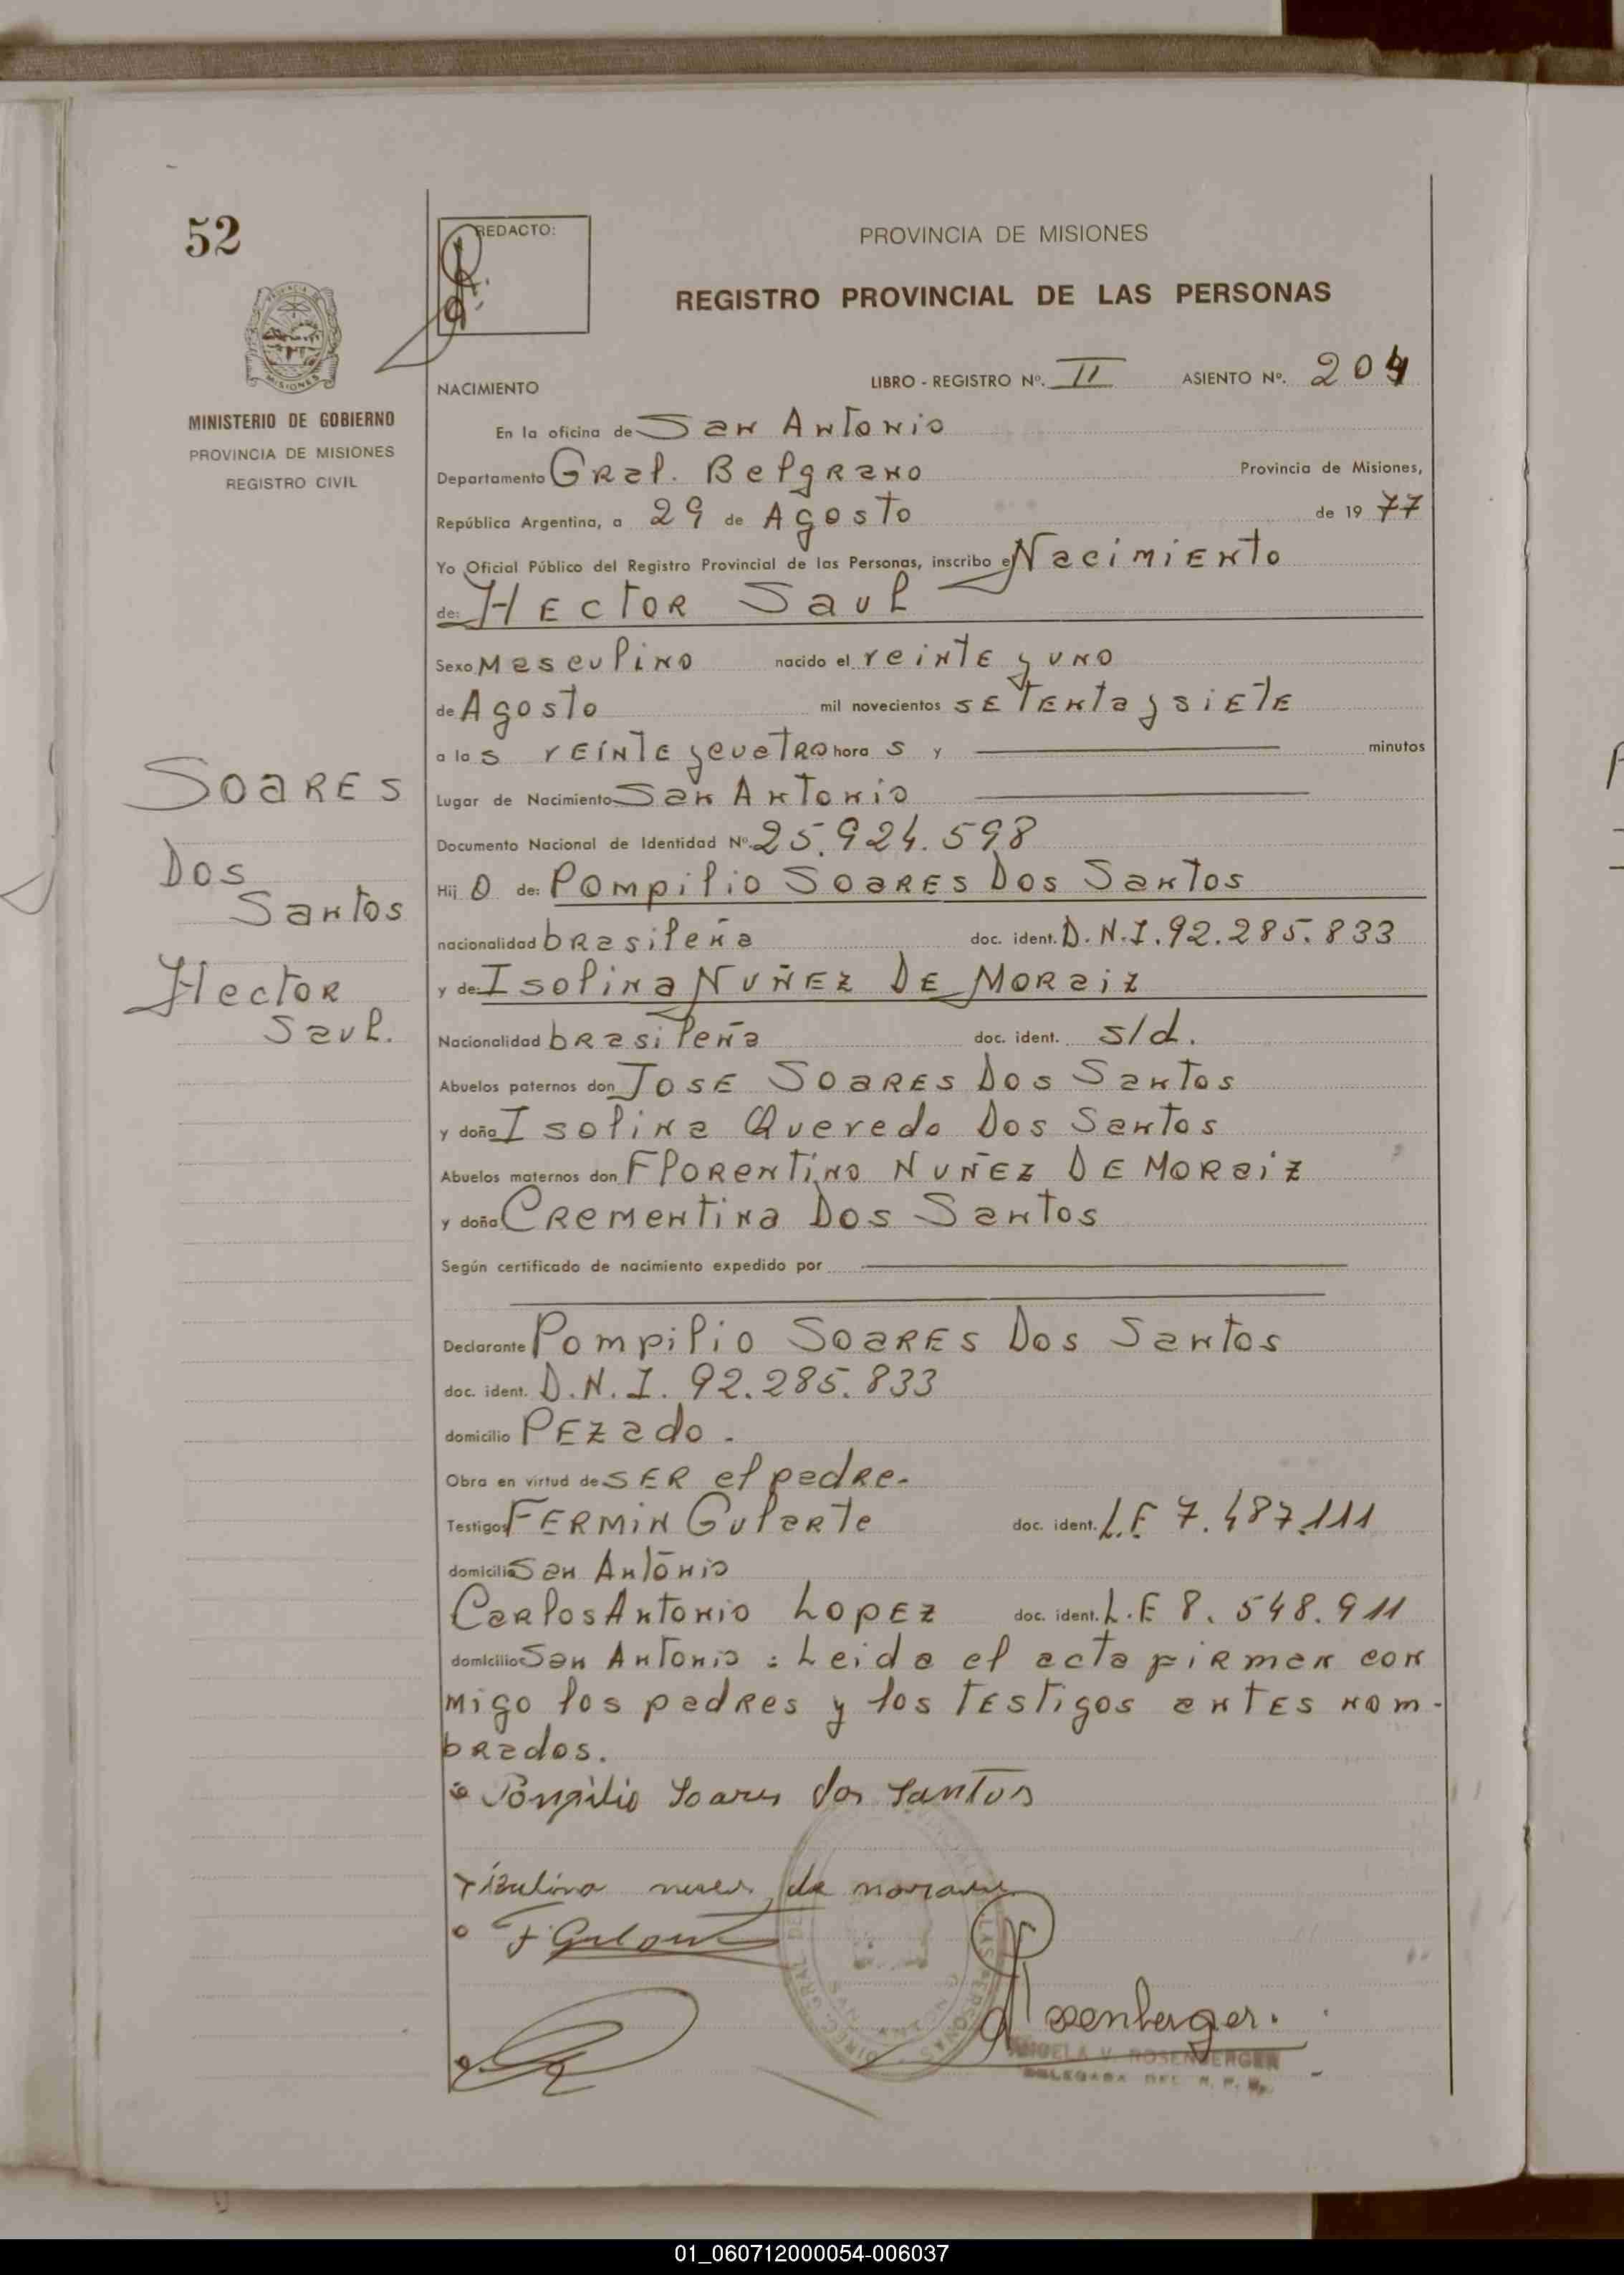 52
REDACTO:
PROVINCIA DE MISIONES
REGISTRO PROVINCIAL DE LAS PERSONAS
MINISTERIO DE GOBIERNO
PROVINCIA DE MISIONES
REGISTRO CIVIL
NACIMIENTO LIBRO - REGISTRO Nº. II ASIENTO Nº. 204
En la oficina de San Antonio
Departamento Gral. Belgrano Provincia de Misiones,
República Argentina, a 29 de Agosto de 1977
Yo Oficial Público del Registro Provincial de las Personas, inscribo el Nacimiento
de: Hector Saul
Sexo Masculino nacido el veinte y uno
de Agosto mil novecientos setenta y siete
a las veinte y cuatro horas y minutos
Lugar de Nacimiento San Antonio
Documento Nacional de Identidad Nº. 25.924.598
Hijo de: Pompilio Soares Dos Santos
nacionalidad brasileña doc. ident. D.N.I. 92.285.833
y de: Isolina Nuñez De Moraiz
Nacionalidad brasileña doc. ident. s/d.
Abuelos paternos don Jose Soares Dos Santos
y doña Isolina Quevedo Dos Santos
Abuelos maternos don Florentino Nuñez De Moraiz
y doña Crementina Dos Santos
Según certificado de nacimiento expedido por
Declarante Pompilio Soares Dos Santos
doc. ident. D.N.I. 92.285.833
domicilio Pezado.
Obra en virtud de ser el padre.
Testigos Fermin Gularte doc. ident. L.E 7.487.111
domicilio San Antonio
Carlos Antonio Lopez doc. ident. L.E 8.548.911
domicilio San Antonio: Leida el acta firman con
migo los padres y los testigos antes nom-
brados.
Pompilio Soares dos Santos
de
F Gularte
Rosenberger.
ANGELA V. ROSENBERGER
DELEGADA DEL R. P. P.
Soares
Dos
Santos
Hector
Saul.
01_060712000054-006037